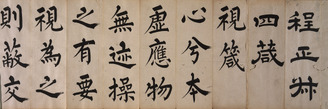 程正叔
四箴
視箴
心兮本
虛應物
無迹操
之有要
視為之
則蔽交